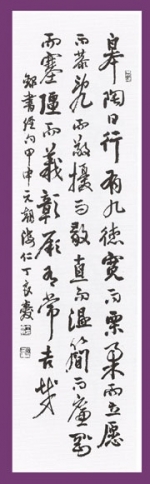 皋陶曰行有九德寬而栗柔而立愿
而恭亂而敬擾而毅直而溫簡而廉剛
而塞彊而義彰厥有常吉哉
書經句甲申元朝海仁丁